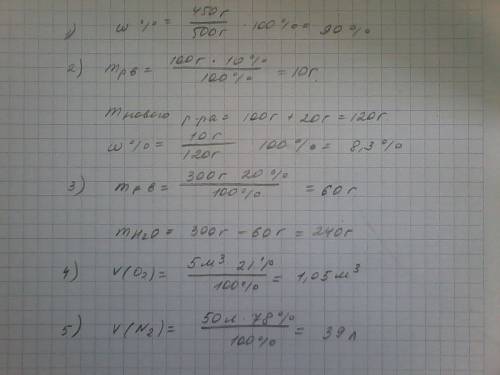 1) ω % = 450г / 500г · 100 % = 90 %
2) m рв = 100г · 10 % / 100 % = 10г.
m нового р-ра = 100г + 20г = 120г
ω % = 10г / 120г 100 % = 8,3 %
3) m рв = 300г 20 % / 100 % = 60г
m H2O = 300г - 60г = 240г
4) V(O2) = 5м³ 21 % / 100 % = 1,05 м³
5) V(N2) = 50л · 78 % / 100 % = 39 л